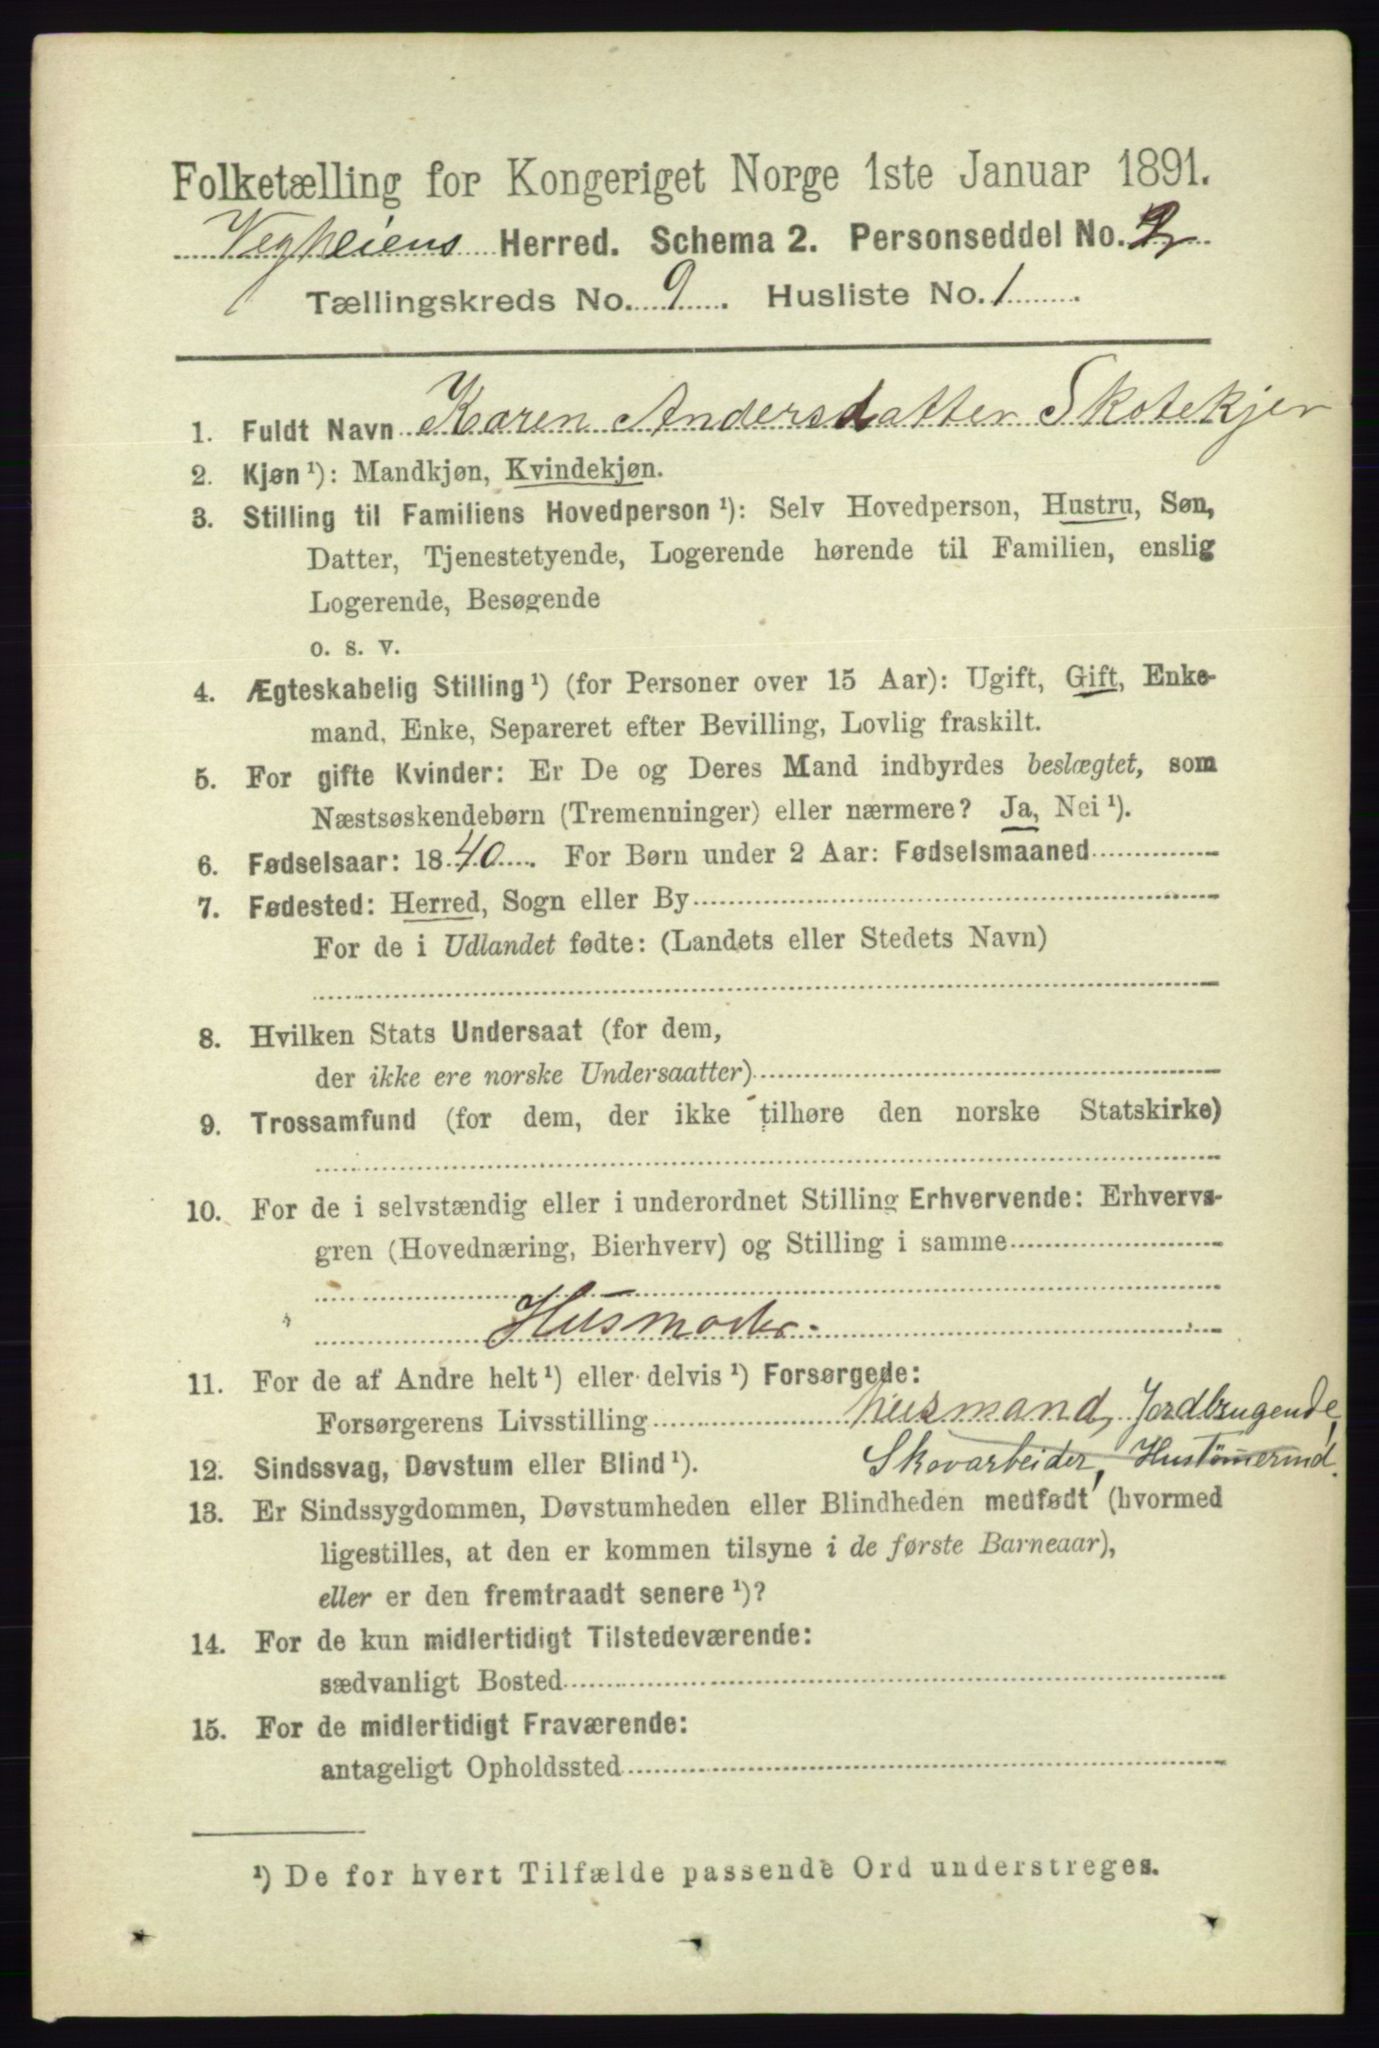 Folketælling for Kongeriget Norge 1ste Januar 1891.
Vegheiens Herred. Schema 2. Personseddel No. 2
Tællingskreds No. 9. Husliste No. 1
1. Fuldt Navn Karen Andersdatter Skotekjer
2. Kjøn ¹): Mandkjøn, Kvindekjøn.
3. Stilling til Familiens Hovedperson ¹): Selv Hovedperson, Hustru, Søn,
Datter, Tjenestetyende, Logerende hørende til Familien, enslig
Logerende, Besøgende
o. s. v.
4. Ægteskabelig Stilling ¹) (for Personer over 15 Aar): Ugift, Gift, Enke-
mand, Enke, Separeret efter Bevilling, Lovlig fraskilt.
5. For gifte Kvinder: Er De og Deres Mand indbyrdes beslægtet, som
Næstsøskendebørn (Tremenninger) eller nærmere? Ja, Nei ¹).
6. Fødselsaar: 1840. For Børn under 2 Aar: Fødselsmaaned
7. Fødested: Herred, Sogn eller By
For de i Udlandet fødte: (Landets eller Stedets Navn)
8. Hvilken Stats Undersaat (for dem,
der ikke ere norske Undersaatter)
9. Trossamfund (for dem, der ikke tilhøre den norske Statskirke)
10. For de i selvstændig eller i underordnet Stilling Erhvervende: Erhvervs-
gren (Hovednæring, Bierhverv) og Stilling i samme
Husmoder.
11. For de af Andre helt ¹) eller delvis ¹) Forsørgede:
Forsørgerens Livsstilling husmand, Jordbrugende,
12. Sindssvag, Døvstum eller Blind ¹). Skovarbeider, Hustømermd.
13. Er Sindssygdommen, Døvstumheden eller Blindheden medfødt (hvormed
ligestilles, at den er kommen tilsyne i de første Barneaar),
eller er den fremtraadt senere ¹)?
14. For de kun midlertidigt Tilstedeværende:
sædvanligt Bosted
15. For de midlertidigt Fraværende:
antageligt Opholdssted
¹) De for hvert Tilfælde passende Ord understreges.